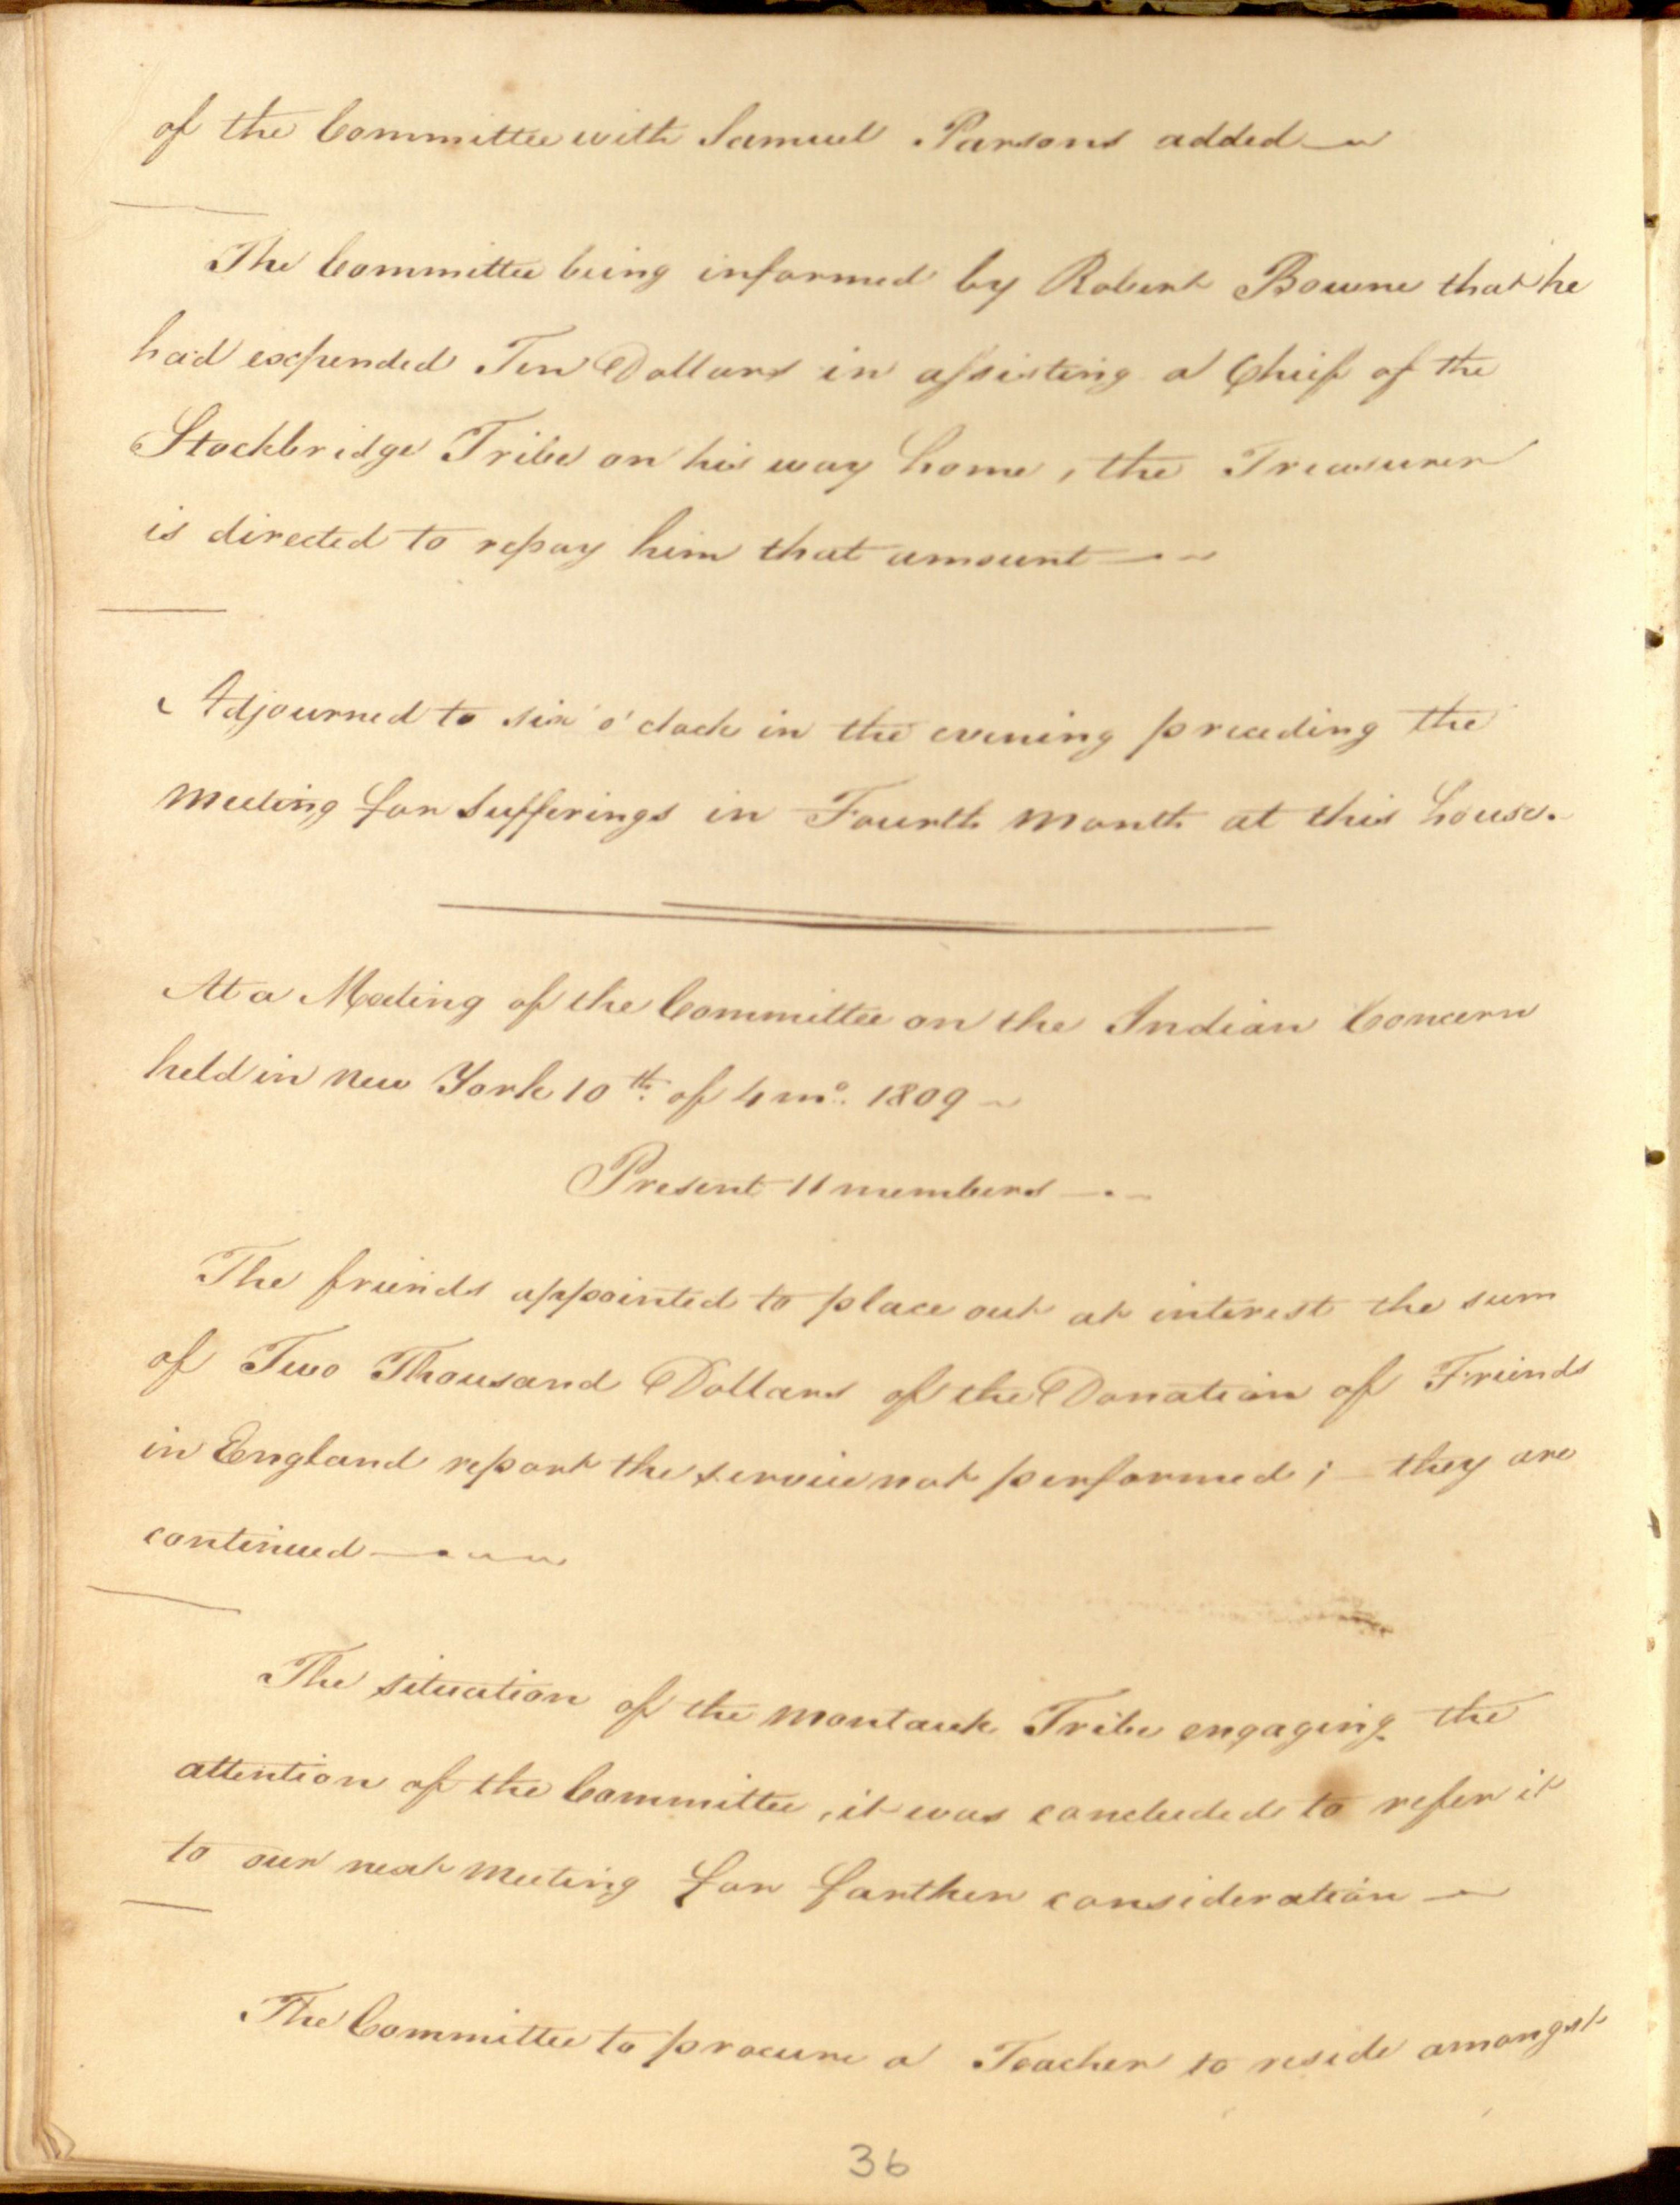 of the Committee with Samuel Parsons added —
The Committee being informed by Robert Bowne that he
had expended Ten Dollars in assisting a Chief of the
Stockbridge Tribe on his way home, the Treasurer
is directed to repay him that amount —
Adjourned to six o'clock in the evening preceding the
Meeting for Sufferings in Fourth Month at this house.
At a Meeting of the Committee on the Indian Concern
held in New York 10th. of 4 mo. 1809 —
Present 11 members —
The friends appointed to place out at interest the sum
of Two Thousand Dollars of the Donation of Friends
in England report the service not performed; they are
continued —
The situation of the Montauk Tribe engaging the
attention of the Committee, it was concluded to refer it
to our next Meeting for farther consideration —
The Committee to procure a Teacher to reside amongst
36